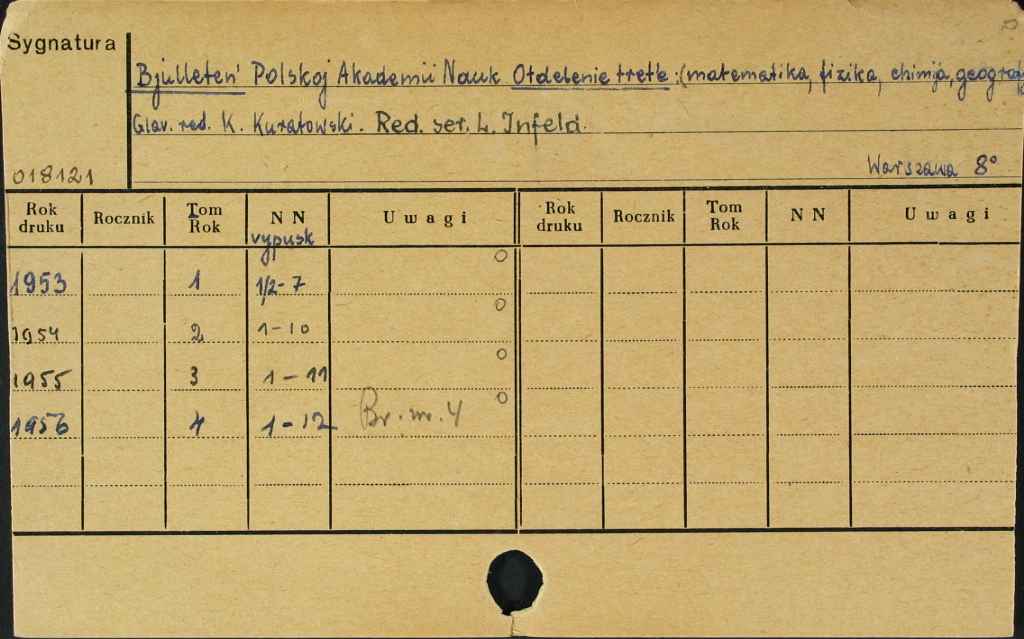 Sygnatura
Bjulleten' Polskoj Akademii Nauk Otdelenie tret'e: (matematika, fizika, chimija, geografi
Glav. red. K. Kuratowski. Red. ser. L. Infeld.
018121
Warszawa 8°
Rok druku Rocznik Tom Rok NN Uwagi Rok druku Rocznik Tom Rok NN Uwagi
vypusk
1953 1 1/2-7 O
1954 2 1-10 O
1955 3 1-11 O
1956 4 1-12 Br. nr. 4 O